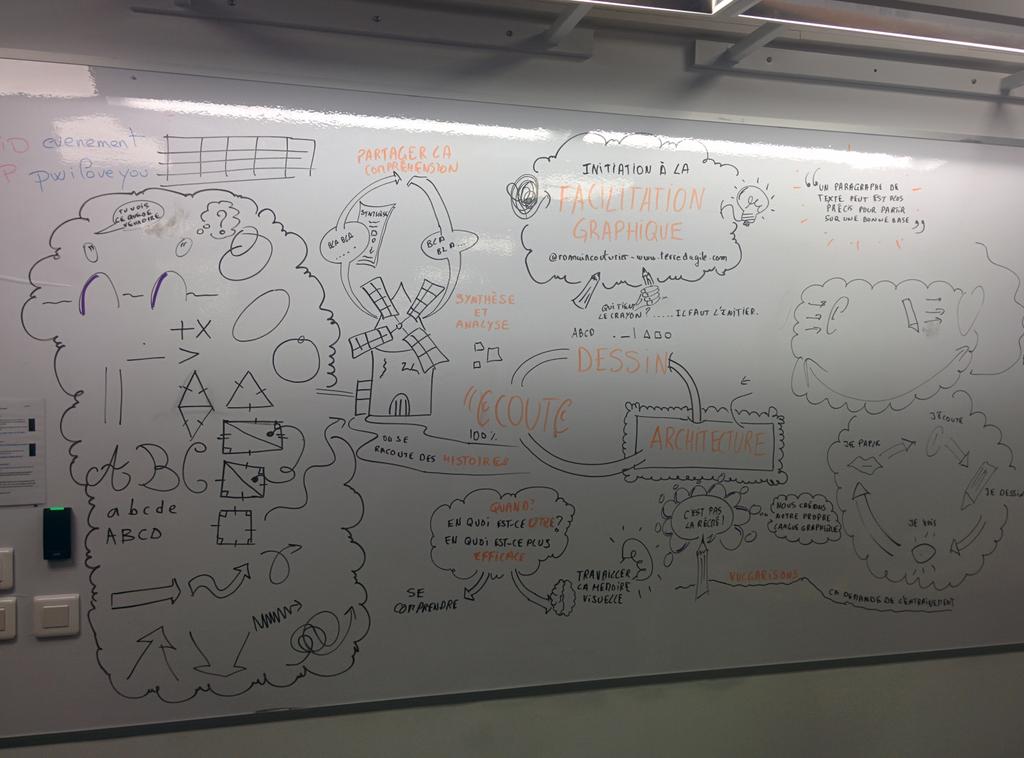 iD evenement
P pwiloveyou
TU VOIS
CE QUE JE
VEUX DIRE
?
+ X
- >
A B C
a b c d e
A B C D
PARTAGER LA
COMPRÉHENSION
SYNTHÈSE
BLA BLA
...
BLA
BLA...
SYNTHÈSE
ET
ANALYSE
INITIATION À LA
FACILITATION
GRAPHIQUE
@romaincouturier - www.terredagile.com
QUI TIENT
LE CRAYON? ..... IL FAUT L'INITIER.
ABCD
DESSIN
ÉCOUTE
100%
ARCHITECTURE
ON SE
RACONTE DES HISTOIRES
"UN PARAGRAPHE DE
TEXTE PEUT EST PLUS
PRÉCIS POUR PARTIR
SUR UNE BONNE BASE"
QUAND?
EN QUOI EST-CE UTILE?
EN QUOI EST-CE PLUS
EFFICACE
SE
COMPRENDRE
TRAVAILLER
LA MÉMOIRE
VISUELLE
C'EST PAS
LA RÉCRÉ!
NOUS CRÉONS
NOTRE PROPRE
LANGUE GRAPHIQUE
VULGARISONS
ÇA DEMANDE DE L'ENTRAÎNEMENT
J'ÉCOUTE
JE PARLE
JE DESSINE
JE VOIS